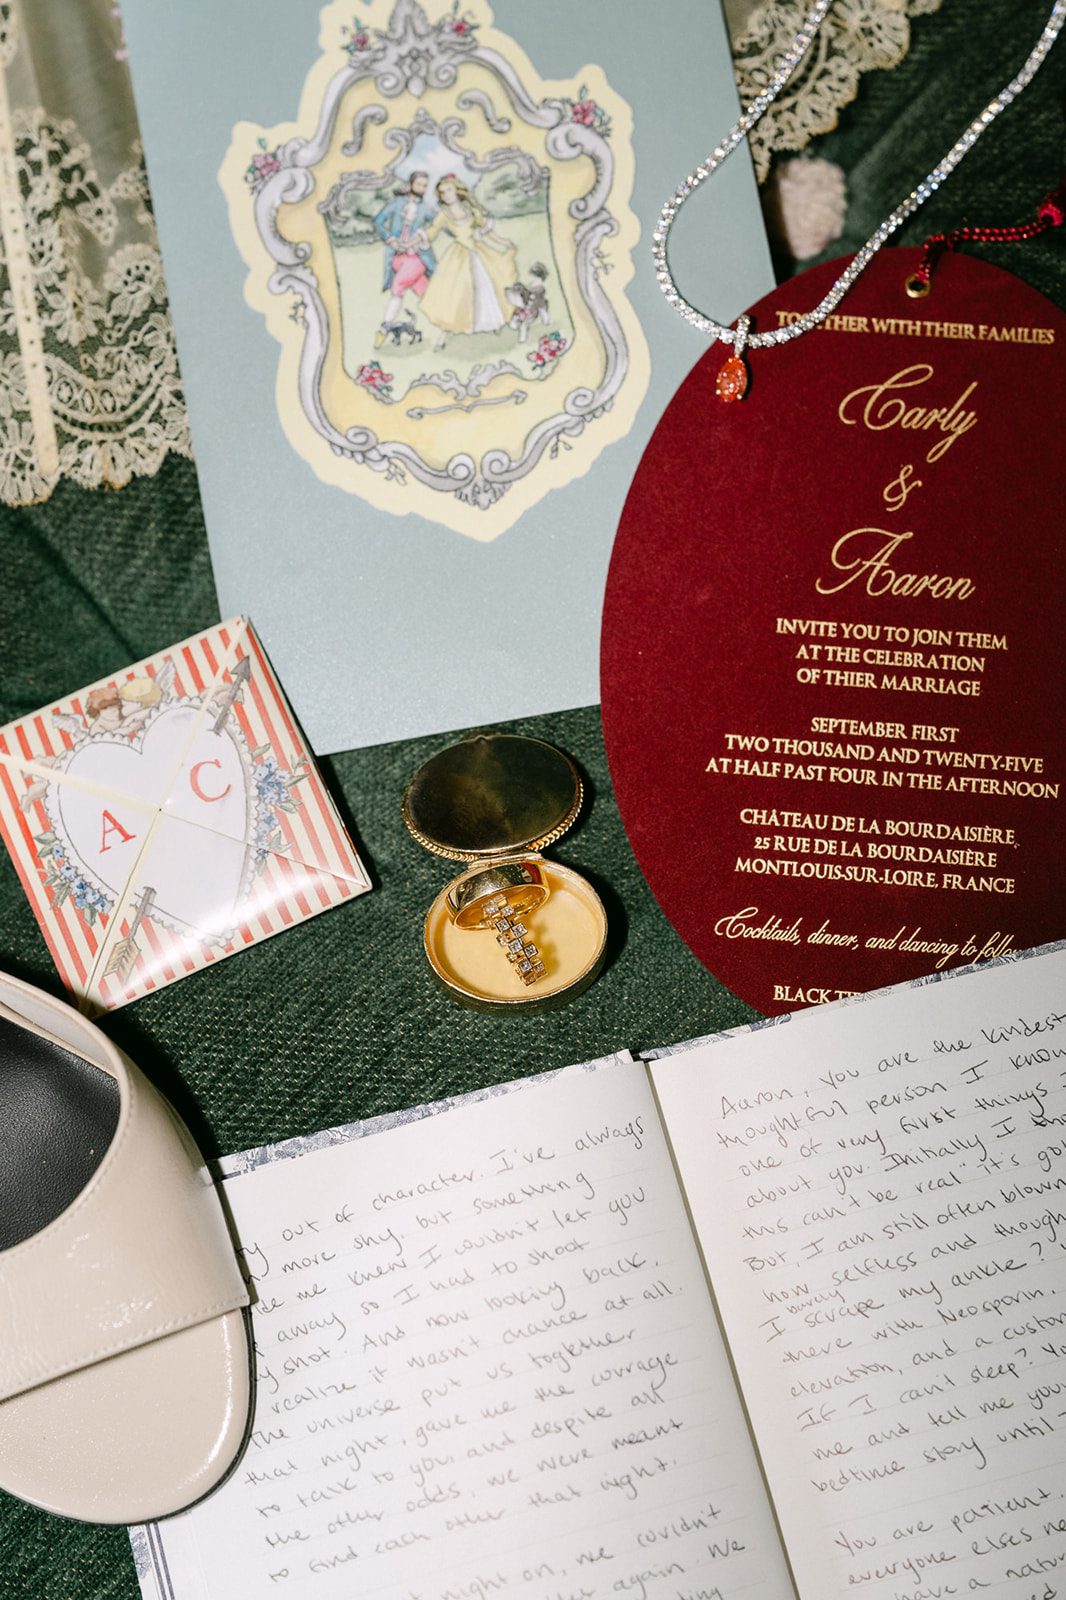 TOGETHER WITH THEIR FAMILIES
Carly
&
Aaron
INVITE YOU TO JOIN THEM
AT THE CELEBRATION
OF THIER MARRIAGE
SEPTEMBER FIRST
TWO THOUSAND AND TWENTY-FIVE
AT HALF PAST FOUR IN THE AFTERNOON
CHÂTEAU DE LA BOURDAISIÈRE,
25 RUE DE LA BOURDAISIÈRE
MONTLOUIS-SUR-LOIRE, FRANCE
Cocktails, dinner, and dancing to follow
BLACK
A C
out of character. I've always
more shy, but something
me knew I couldn't let you
away so I had to shoot
my shot. And now looking back,
realize it wasn't chance at all.
The universe put us together
that night, gave me the courage
to talk to you, and despite all
the other odds, we were meant
to find each other that night.
night on, we couldn't
again. We
Aaron, you are the kindest
thoughtful person I know
one of very first things I
about you. Initially I
this can't be real "it's
But, I am still often blown
how selfless and
barely
I scrape my ankle?
there with Neosporin,
elevation, and a custom
If I can't sleep?
me and tell me your
bedtime story until
You are patient.
everyone elses
have a